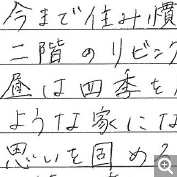 今まで住み慣
二階のリビング
昼は四季を
ような家にな
思いを固め